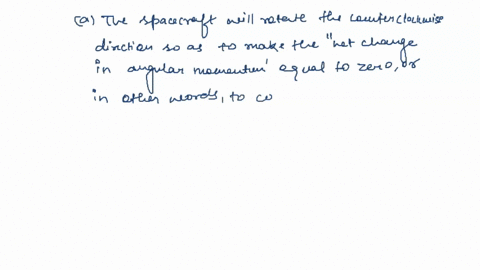 (a) The spacecraft will rotate the counterclockwise
direction so as to make the "net change
in angular momentum' equal to zero, or
in other words, to co